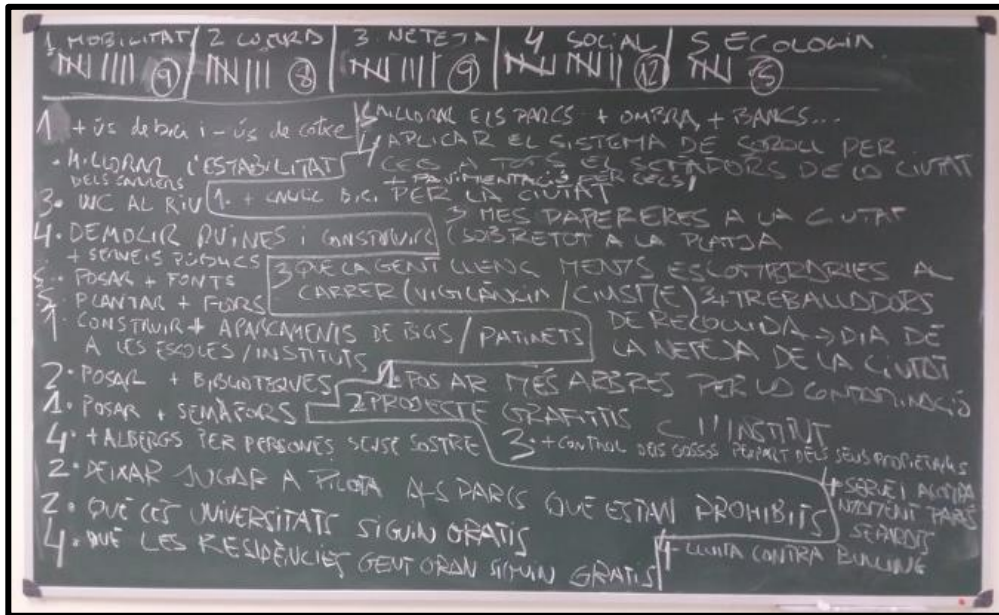 1. MOBILITAT / 2 CULTURA / 3. NETEJA / 4 SOCIAL / 5. ECOLOGIA
9 8 9 12 5
1. + ús de bici i - ús de cotxe
· MILLORAR L'ESTABILITAT
DELS CARRERS
3. WC AL RIU
4. DEMOLIR RUINES i CONSTRUIR
+ SERVEIS PÚBLICS
5. POSAR + FONTS
5. PLANTAR + FLORS
1. CONSTRUIR + APARCAMENTS DE BICIS / PATINETS
A LES ESCOLES / INSTITUTS
2. POSAR + BIBLIOTEQUES
1. POSAR + SEMÀFORS
4. + ALBERGS PER PERSONES SENSE SOSTRE
2. DEIXAR JUGAR A PILOTA ALS PARCS QUE ESTAN PROHIBITS
2. QUE LES UNIVERSITATS SIGUIN GRATIS
4. QUE LES RESIDÈNCIES GENT GRAN SIGUIN GRATIS
5 MILLORAR ELS PARCS + OMBRA, + BANCS...
4 APLICAR EL SISTEMA DE SOROLL PER
CECS A TOTS EL SEMÀFORS DE LA CIUTAT
+ PAVIMENTACIÓ PER CECS
1. + CARRIL BICI PER LA CIUTAT
3 MES PAPERERES A LA CIUTAT
(SOBRETOT A LA PLATJA
3 QUE LA GENT LLENÇ MENYS ESCOMBRARIES AL
CARRER (VIGILÀNCIA /
3 + TREBALLADORS
DE RECOLLIDA → DIA DE
LA NETEJA DE LA CIUTAT
1. POSAR MÉS ARBRES PER LA CONTAMINACIÓ
2 PROJECTE GRAFITIS
L'INSTITUT
3. + CONTROL DELS GOSSOS PER PART DELS SEUS PROPIETARIS
4 SERVEI
PARES
SEPARATS
4 - LLUITA CONTRA BULLING